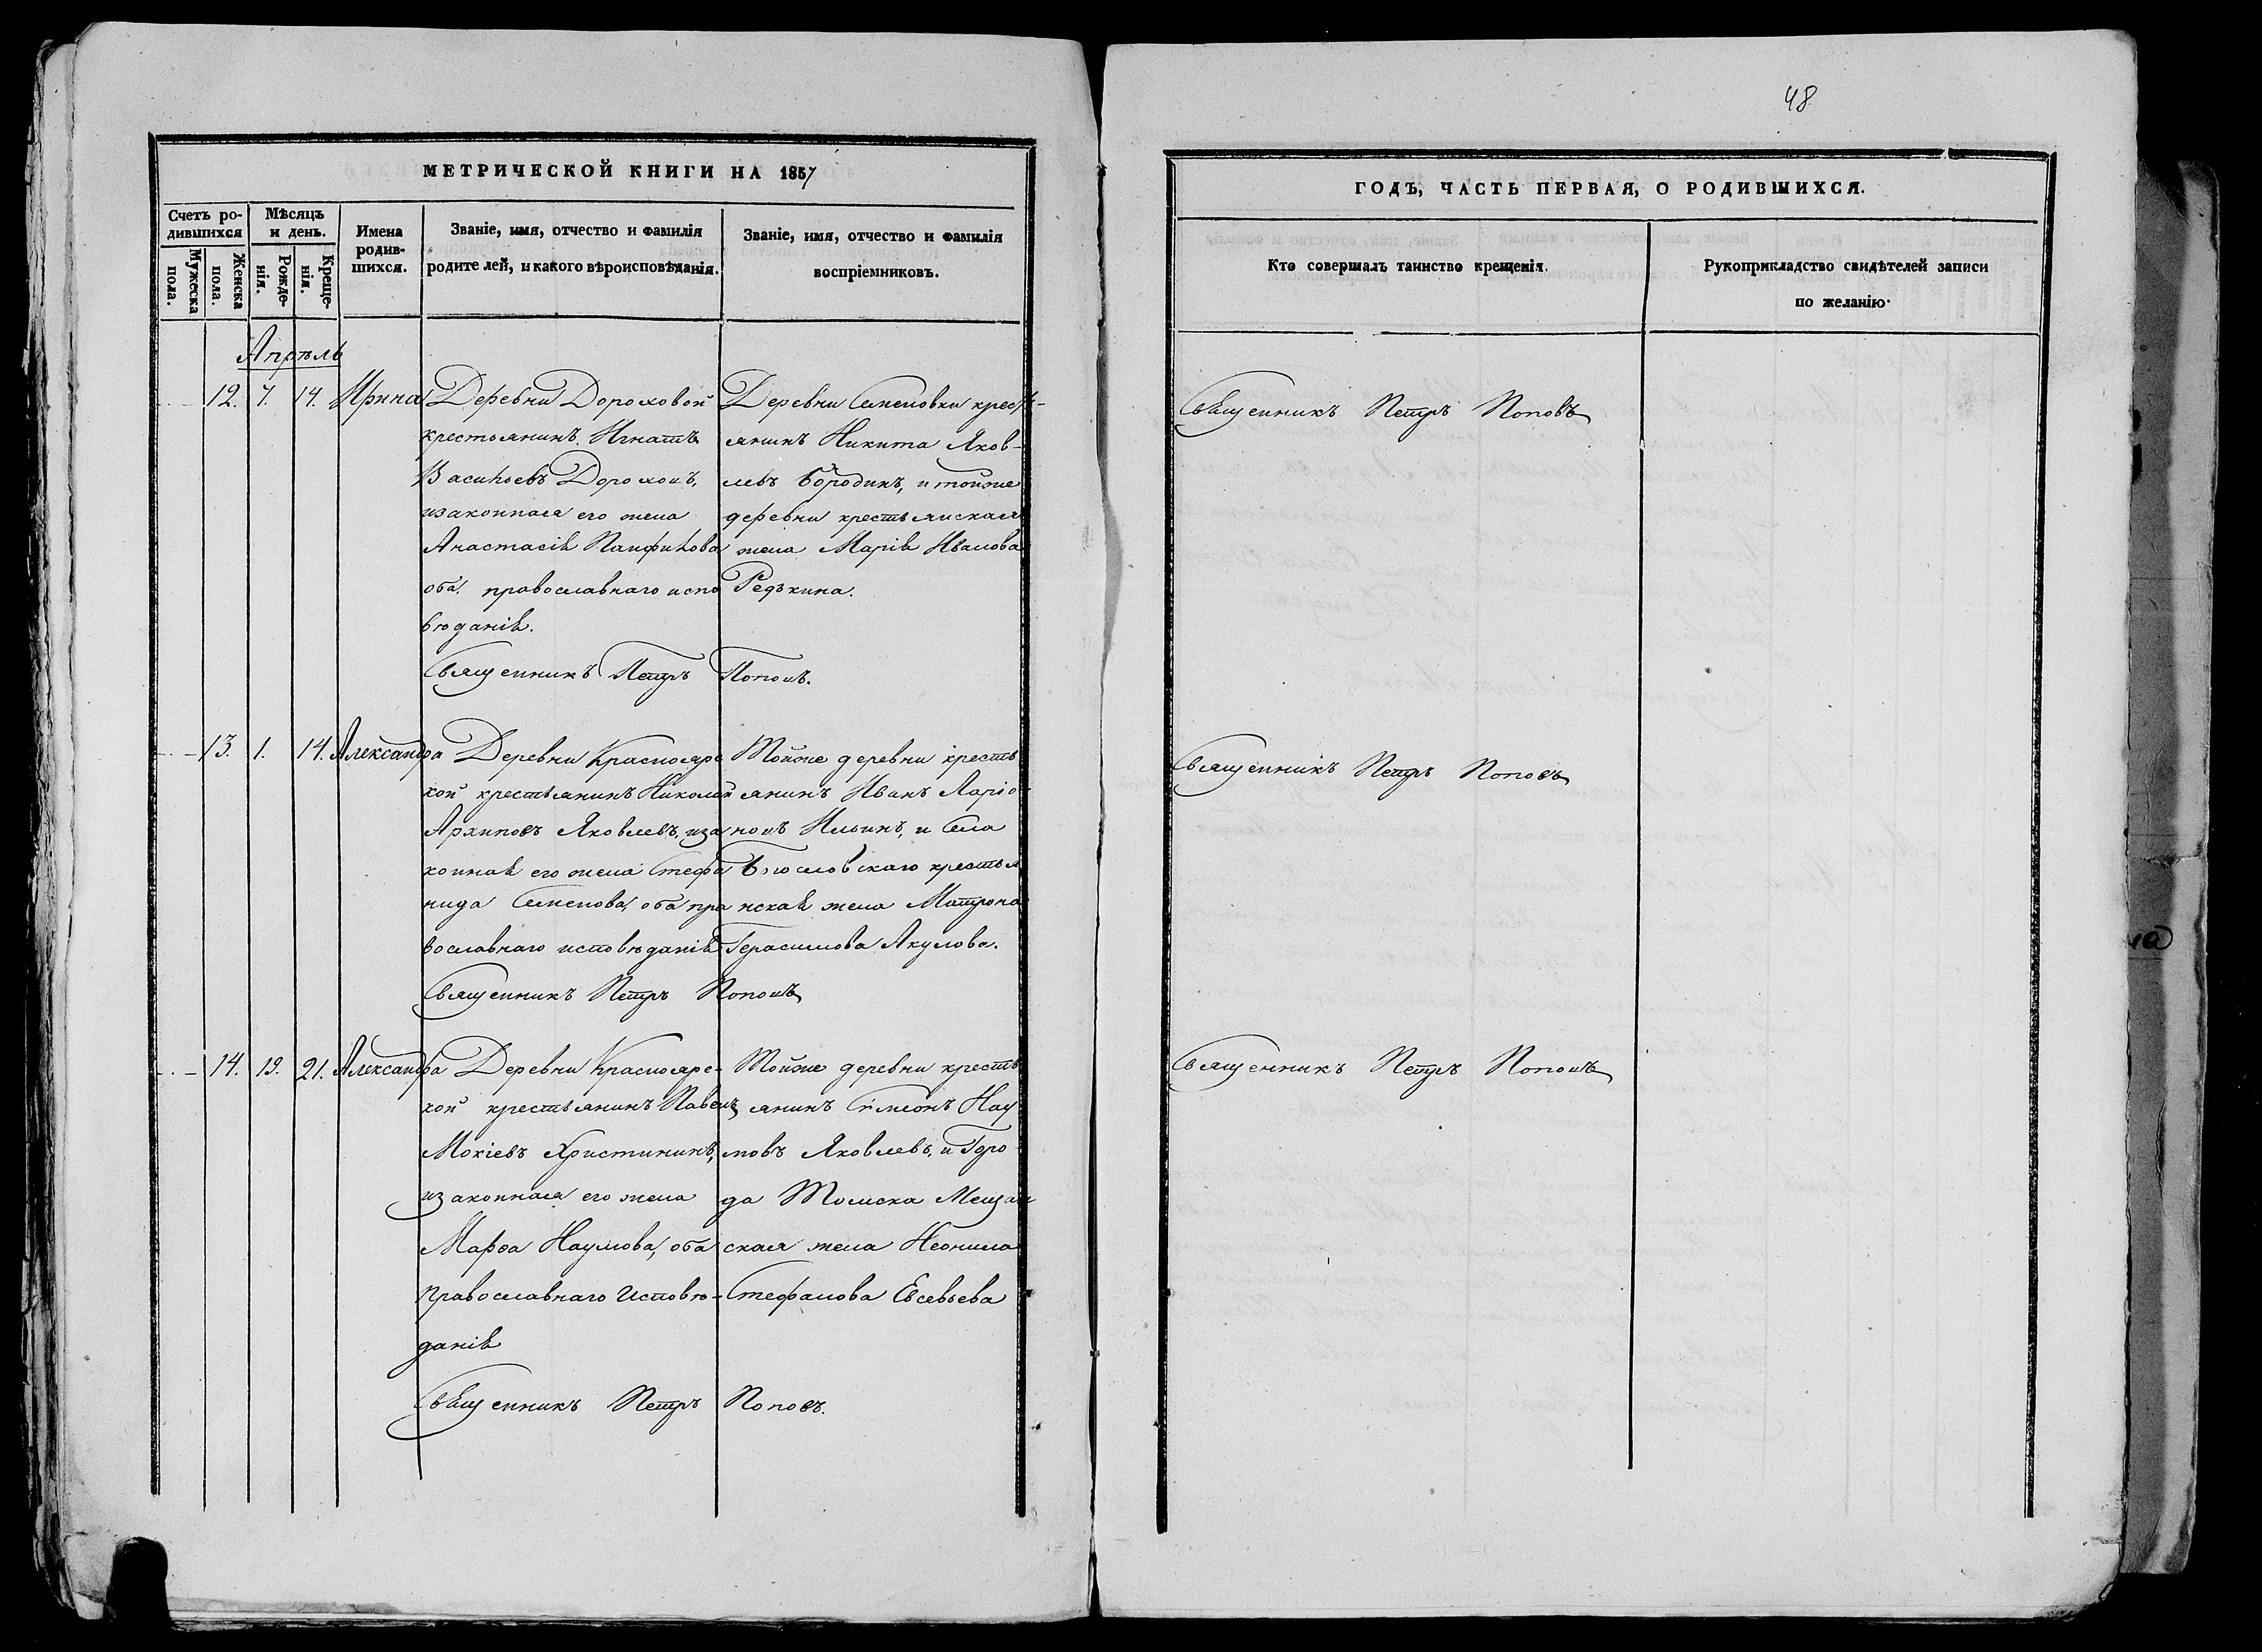 48
МЕТРИЧЕСКОЙ КНИГИ НА 1857
ГОДЪ, ЧАСТЬ ПЕРВАЯ, О РОДИВШИХСЯ.
Счетъ ро-
дившихся
Мужеска
пола.
Женска
пола.
Мѣсяцъ
и день.
Рожде-
нія.
Креще-
нія.
Имена
родив-
шихся.
Званіе, имя, отчество и фамилія
родителей, и какого вѣроисповѣданія.
Званіе, имя, отчество и фамилія
воспріемниковъ.
Кто совершалъ таинство крещенія.
Рукоприкладство свидѣтелей записи
по желанію.
Апрѣль
12. 7. 14. Ирина
Деревни Дороховой
крестьянинъ Игнатъ
Васильевъ Дороховъ,
и законная его жена
Анастасія Панфилова
оба православнаго испо
вѣданія.
Деревни Семеновки кресть-
янинъ Никита Яков-
левъ Бородинъ, и тойже
деревни крестьянская
жена Марія Иванова
Редькина.
Священникъ Петръ Поповъ.
Священникъ Петръ Поповъ
13. 1. 14. Александра
Деревни Красноярс
кой крестьянинъ Николай
Архиповъ Яковлевъ, и за
конная его жена Стефа
нида Семенова, оба пра
вославнаго исповѣданія
Тойже деревни кресть
янинъ Иванъ Ларіо
новъ Ильинъ, и Села
Богословскаго крестья
нская жена Матрона
Герасимова Акулова.
Священникъ Петръ Поповъ
Священникъ Петръ Поповъ
14. 19. 21. Александра
Деревни Красноярс-
кой крестьянинъ Павелъ
Мокіевъ Христининъ,
и законная его жена
Марѳа Наумова, оба
православнаго исповѣ-
данія
Тойже деревни кресть
янинъ Сѵмеонъ Нау
мовъ Яковлевъ, и Горо
да Томска Мещан
ская жена Неонила
Стефанова Евсевьева
Священникъ Петръ Поповъ.
Священникъ Петръ Поповъ